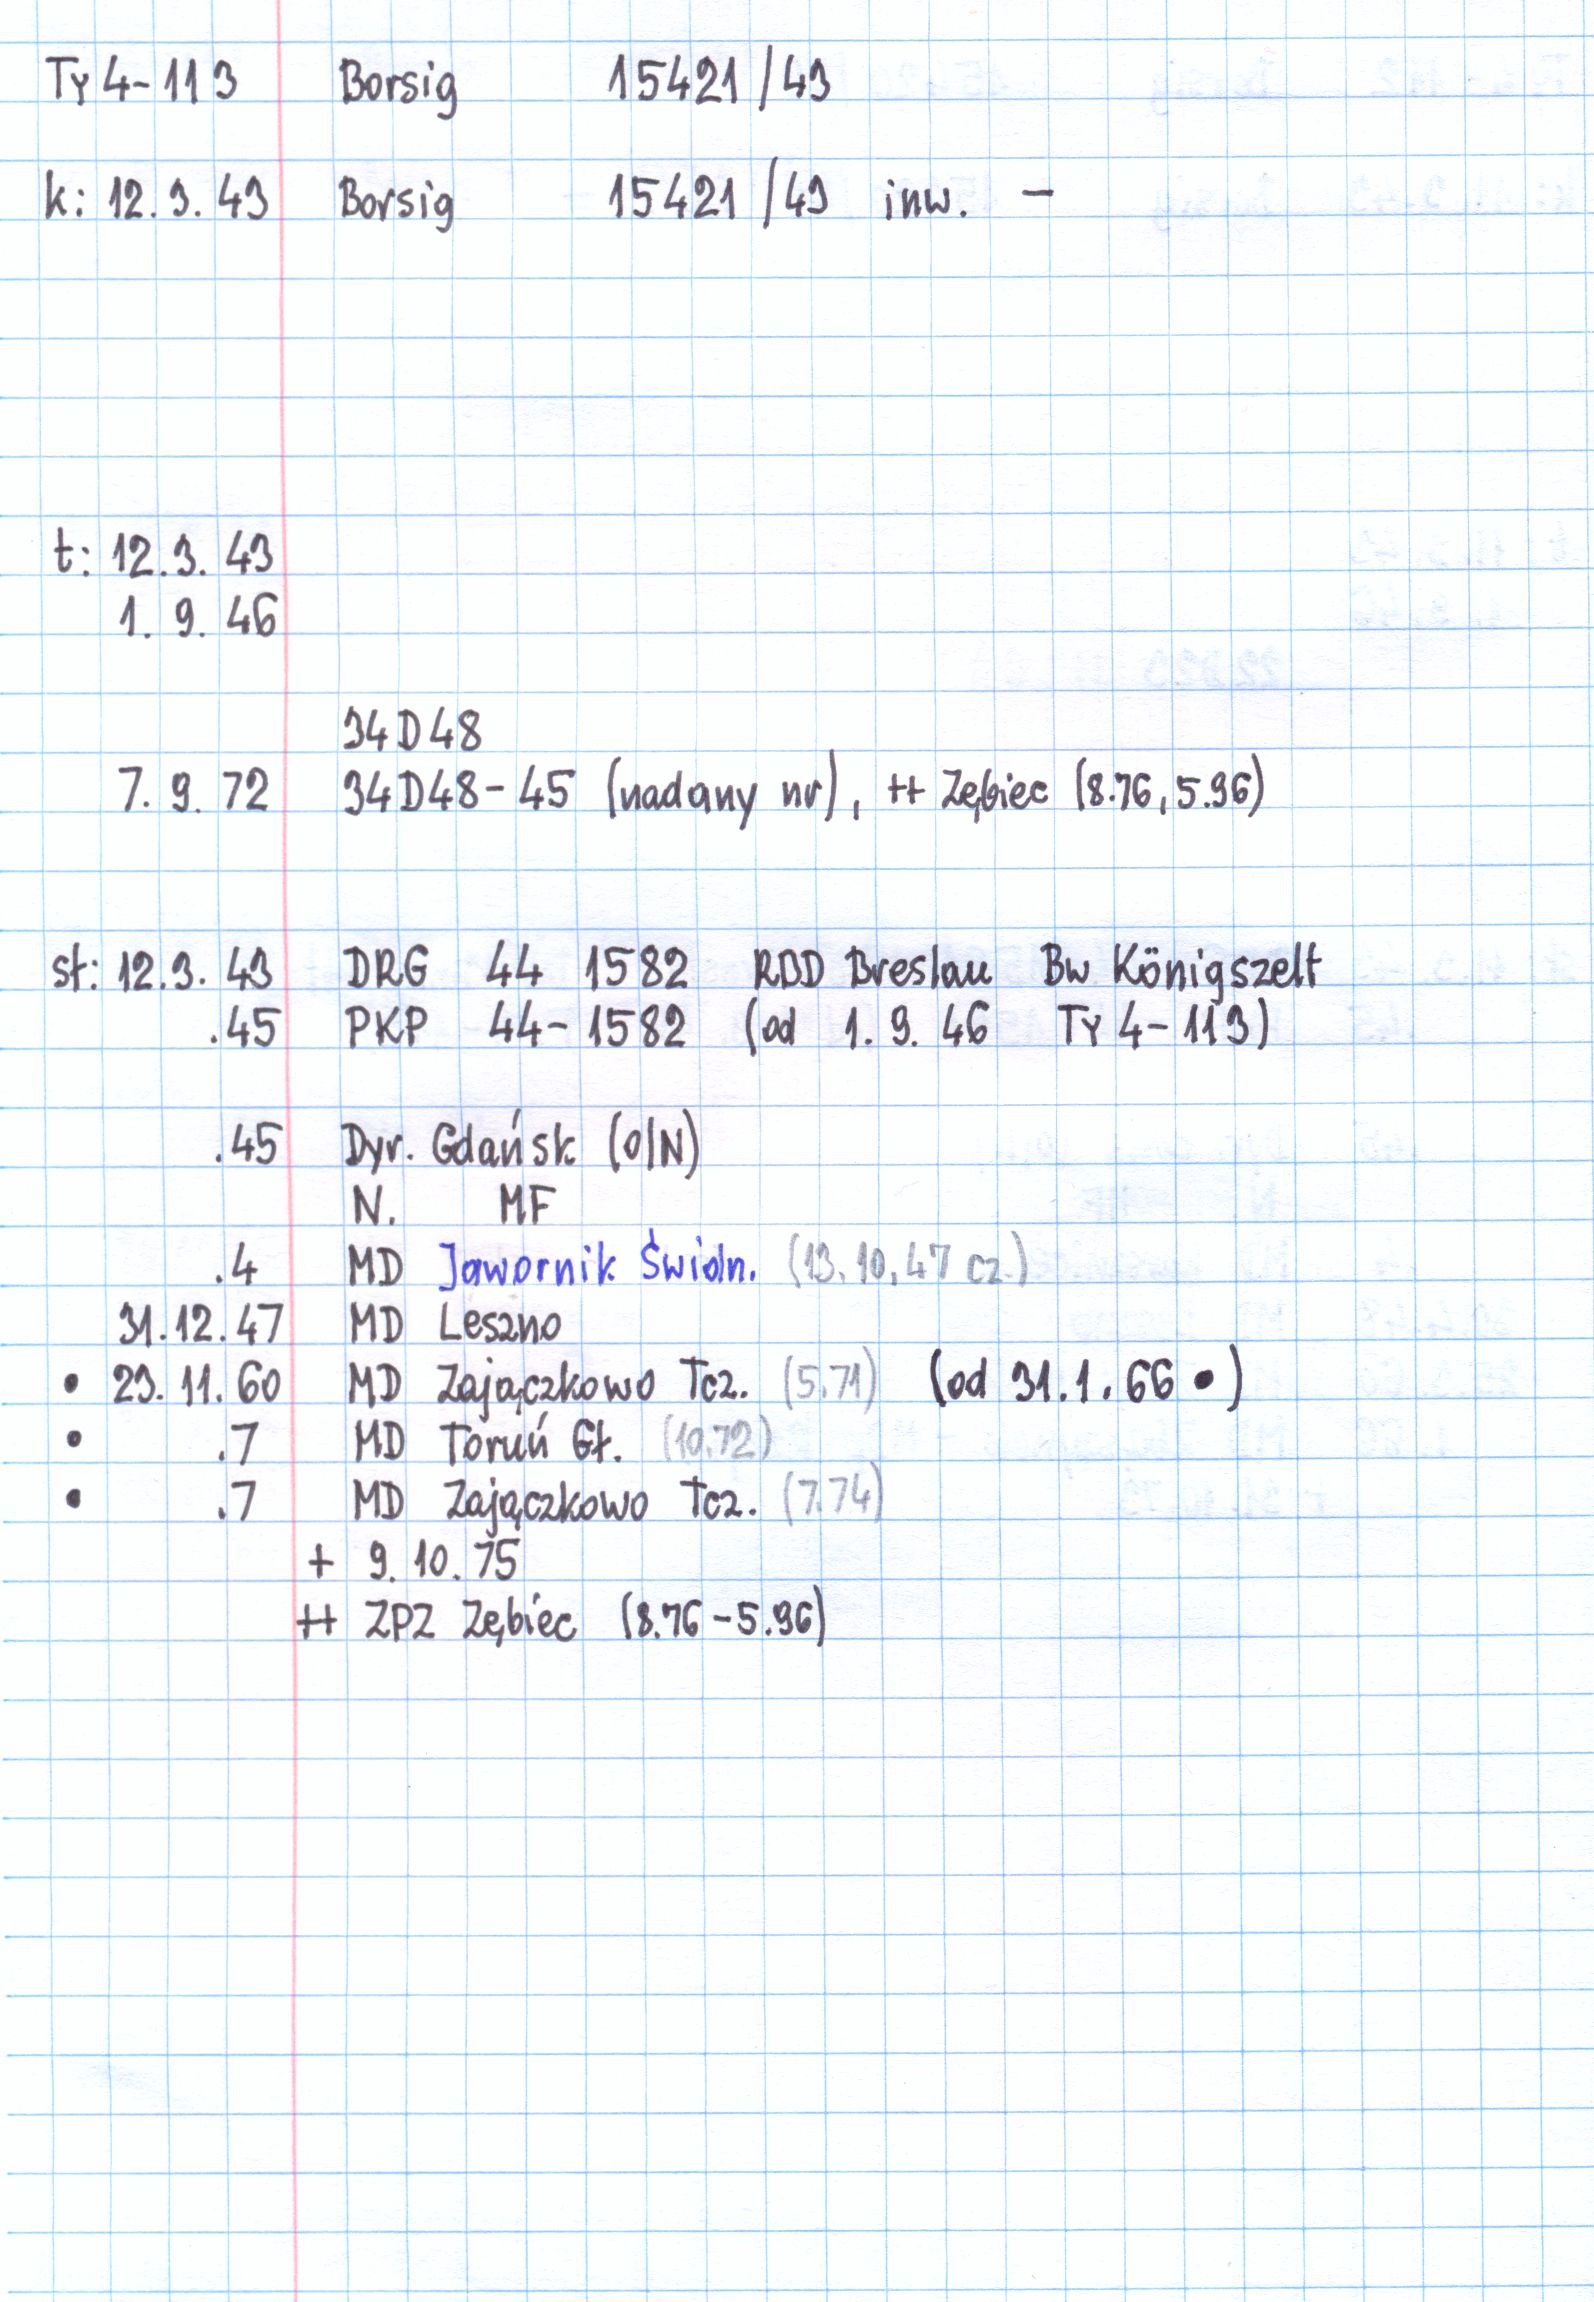 Ty 4-113 Borsig 15421/43
k: 12.3.43 Borsig 15421/43 inw. –
t: 12.3.43
1.9.46
34D48
7.9.72 34D48-45 (nadany nr), ++ Zębiec (8.76, 5.96)
st: 12.3.43 DRG 44 1582 RBD Breslau Bw Königszelt
.45 PKP 44-1582 (od 1.9.46 Ty 4-113)
.45 Dyr. Gdańsk (O/N)
N. MF
.4 MD Jawornik Świdn. (13.10.47 cz.)
31.12.47 MD Leszno
• 23.11.60 MD Zajączkowo Tcz. (5.71) (od 31.1.66 •)
• .7 MD Toruń Gł. (10.72)
• .7 MD Zajączkowo Tcz. (7.74)
+ 9.10.75
++ ZPZ Zębiec (8.76-5.96)